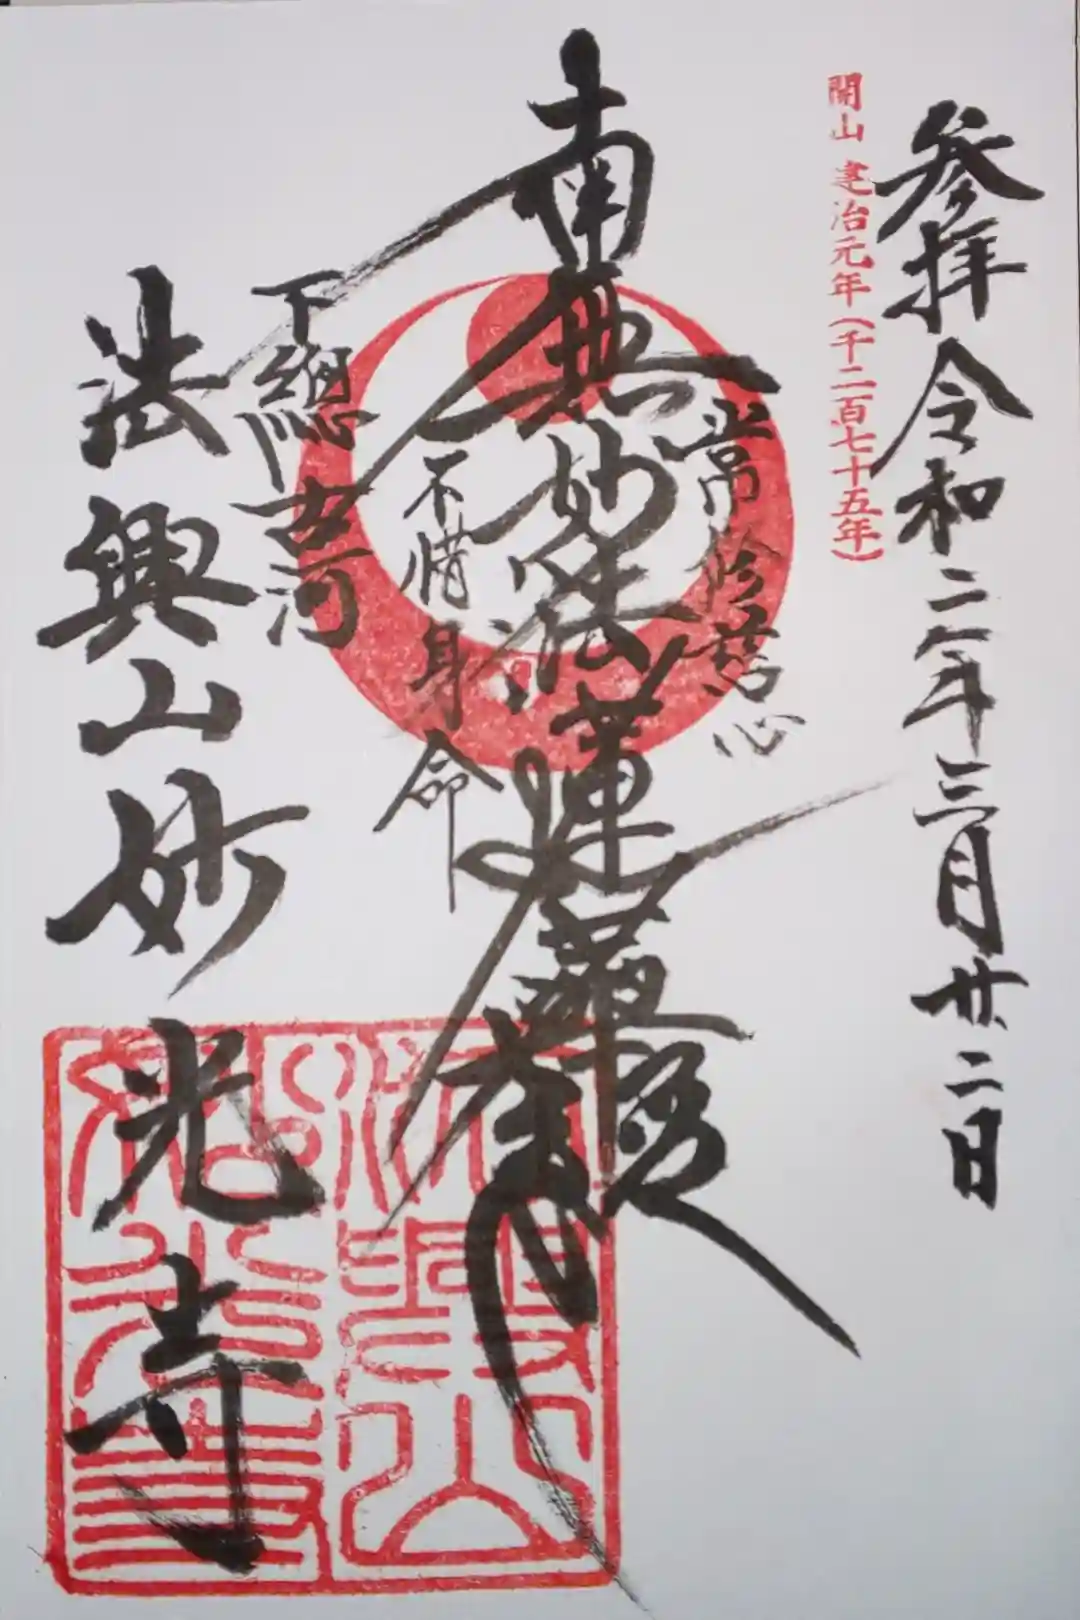 参拝 令和二年三月廿二日
開山 建治元年(千二百七十五年)
常修慈心
南無妙法蓮華経
不惜身命
下総古河
法興山妙光寺
法興山
妙光寺